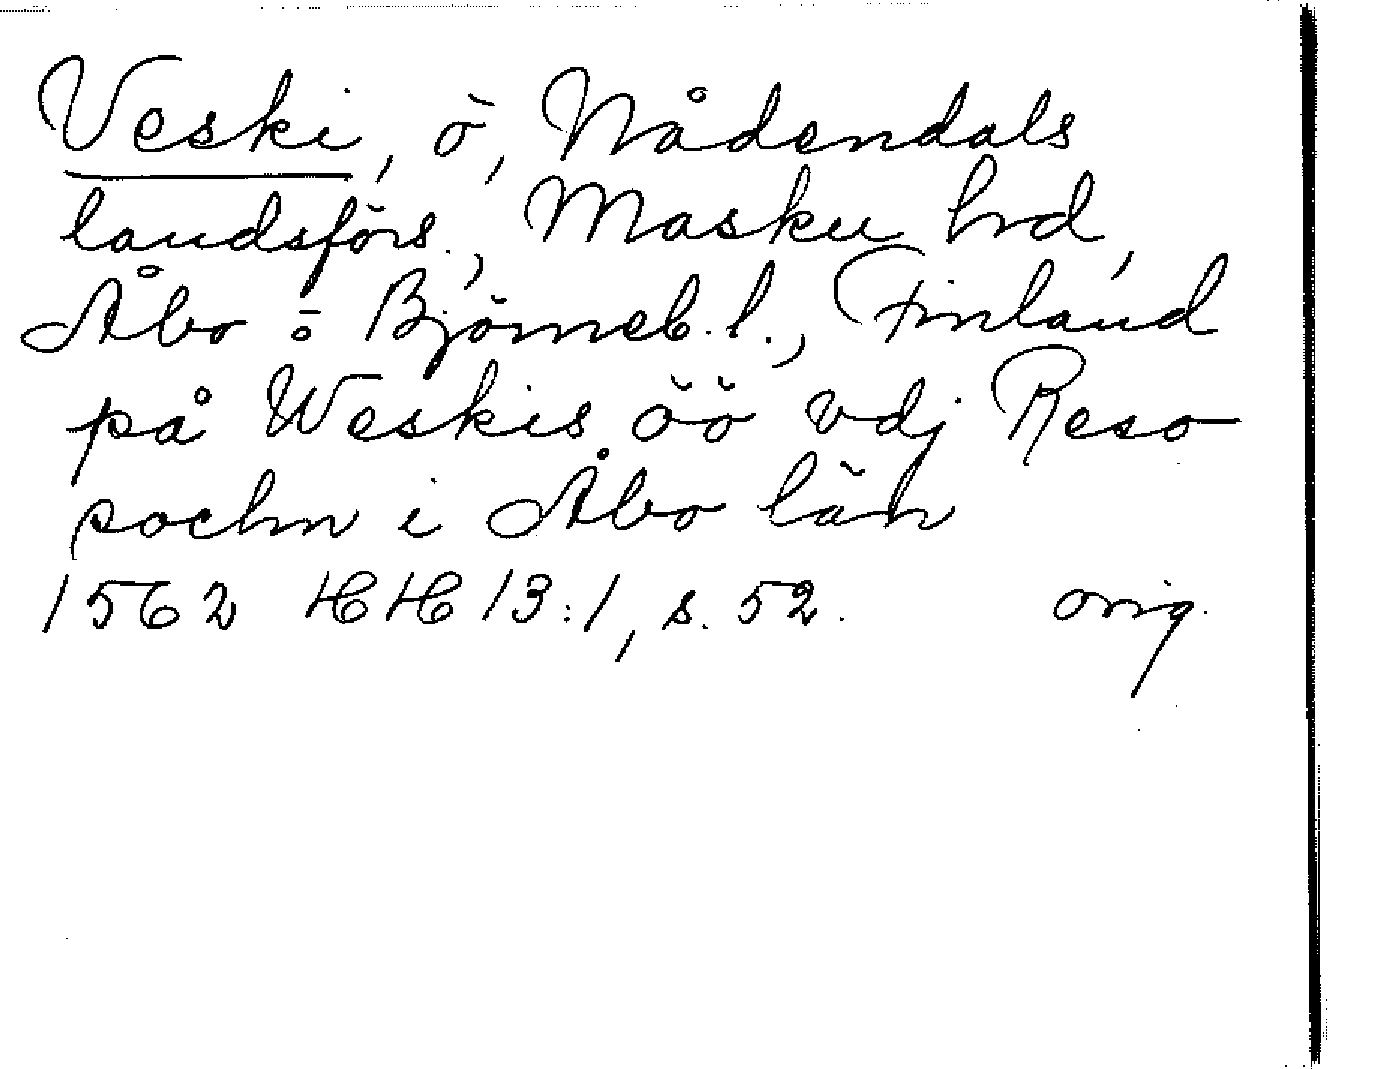 Veski, ö, Nådendals
landsförs., Masku hrd,
Åbo o Björneb. l., Finland
på Weskis öö vdj Reso
sochn i Åbo län
1562 HH 13:1, s. 52. orig.